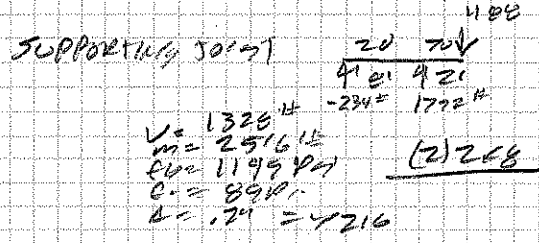 488
SUPPORTING JOIST 20 70
4'0" 4'2"
-234# 1772#
V = 1328#
m = 2516'#
fb = 1199 psi
(2) 2x8
fv = 89 psi
Δ = .24" = L/216